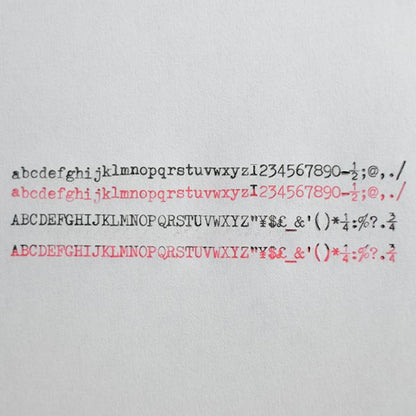 abcdefghijklmnopqrstuvwxyzI234567890-½;@,./
abcdefghijklmnopqrstuvwxyzI234567890-½;@,./
ABCDEFGHIJKLMNOPQRSTUVWXYZ"¥$£_&'()*¼:%?.¾
ABCDEFGHIJKLMNOPQRSTUVWXYZ"¥$£_&'()*¼:%?.¾